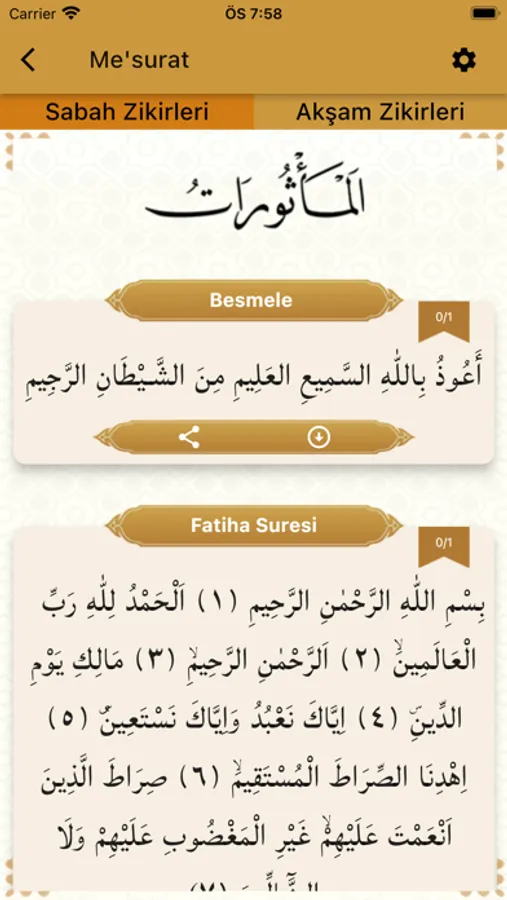 Carrier
ÖS 7:58
Me'surat
Sabah Zikirleri
Akşam Zikirleri
الْمَأْثُورَاتُ
Besmele
0/1
أَعُوذُ بِاللهِ السَّمِيعِ العَلِيمِ مِنَ الشَّيْطَانِ الرَّجِيمِ
Fatiha Suresi
0/1
بِسْمِ اللهِ الرَّحْمٰنِ الرَّحِيمِ (١) اَلْحَمْدُ لِلهِ رَبِّ
الْعَالَمِينَۙ (٢) اَلرَّحْمٰنِ الرَّحِيمِۙ (٣) مَالِكِ يَوْمِ
الدِّينِۜ (٤) اِيَّاكَ نَعْبُدُ وَاِيَّاكَ نَسْتَعِينُۜ (٥)
اِهْدِنَا الصِّرَاطَ الْمُسْتَقِيمَۙ (٦) صِرَاطَ الَّذِينَ
اَنْعَمْتَ عَلَيْهِمْۙ غَيْرِ الْمَغْضُوبِ عَلَيْهِمْ وَلَا